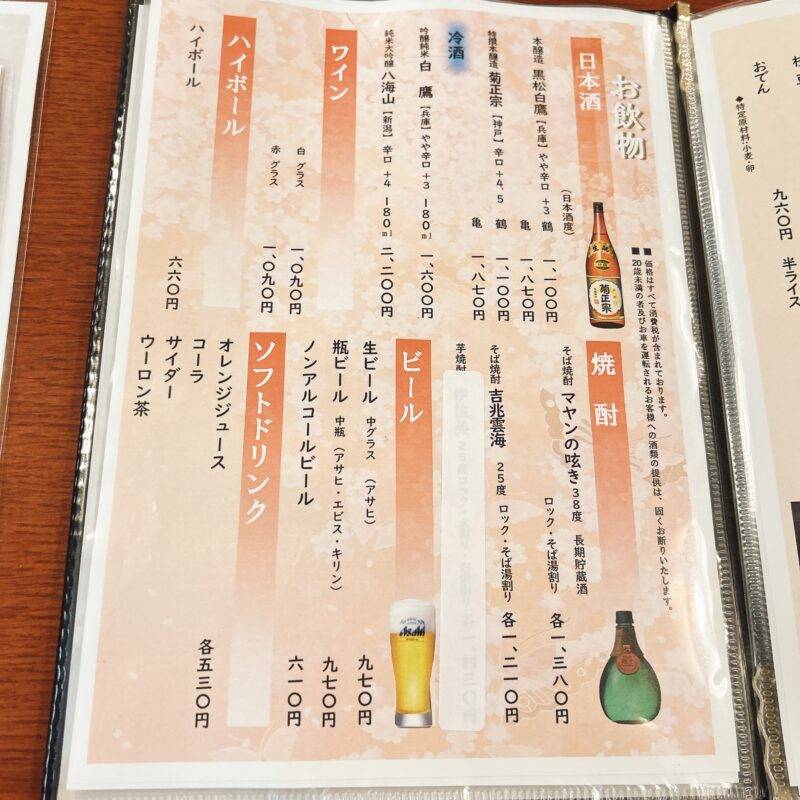 お飲物
■ 価格はすべて消費税が含まれております。
■ 20歳未満の者及びお車を運転されるお客様への酒類の提供は、固くお断りいたします。
日本酒
(日本酒度)
本醸造 黒松白鷹【兵庫】やや辛口 +3 鶴 一、一〇〇円
亀 一、八七〇円
特撰本醸造 菊正宗【神戸】辛口 +4、5 鶴 一、一〇〇円
亀 一、八七〇円
冷酒
吟醸純米 白鷹【兵庫】やや辛口 +3 180ml 一、六〇〇円
純米大吟醸 八海山【新潟】辛口 +4 180ml 二、二〇〇円
ワイン
白 グラス 一、〇九〇円
赤 グラス 一、〇九〇円
ハイボール
ハイボール 六六〇円
焼酎
そば焼酎 マヤンの呟き 38度 長期貯蔵酒
ロック・そば湯割り 各一、三八〇円
そば焼酎 吉兆雲海 25度 ロック・そば湯割り 各一、二一〇円
芋焼酎
ビール
生ビール 中グラス (アサヒ) 九七〇円
瓶ビール 中瓶 (アサヒ・エビス・キリン) 九七〇円
ノンアルコールビール 六一〇円
ソフトドリンク
オレンジジュース
コーラ
サイダー
ウーロン茶
各五三〇円
菊正宗
Asahi
おでん
◆特定原材料・小麦・卵
九六〇円
半ライス